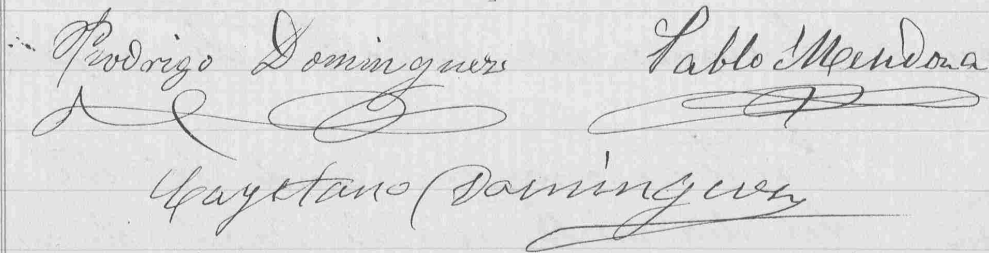 Rodrigo Dominguez Pablo Mendoza
Cayetano Dominguez